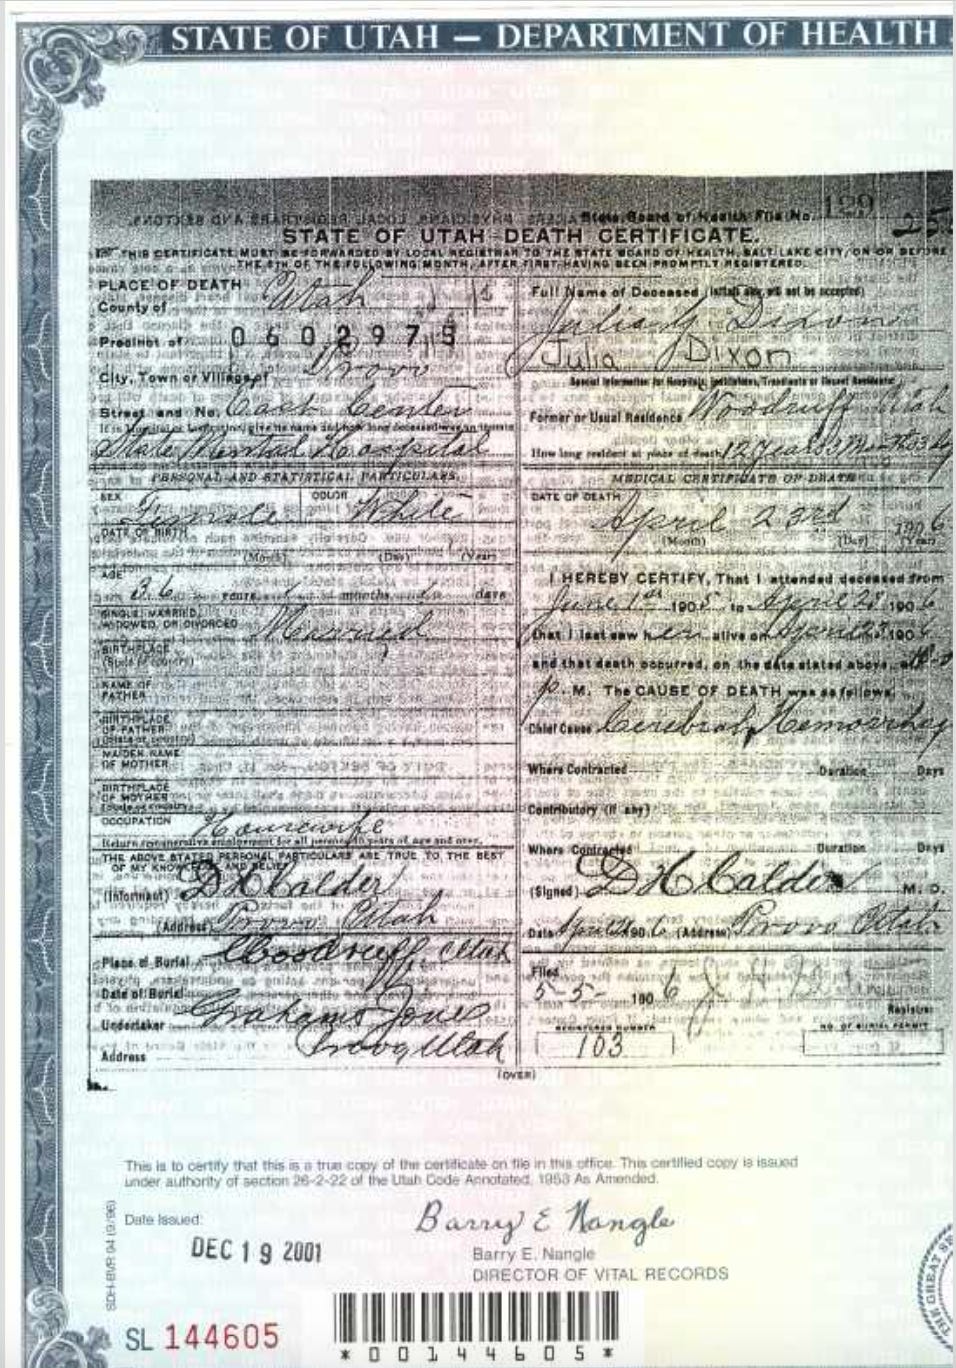 STATE OF UTAH — DEPARTMENT OF HEALTH
State Board of Health File No. 199
STATE OF UTAH—DEATH CERTIFICATE.
THIS CERTIFICATE MUST BE FORWARDED BY LOCAL REGISTRAR TO THE STATE BOARD OF HEALTH, SALT LAKE CITY, ON OR BEFORE
THE 5TH OF THE FOLLOWING MONTH, AFTER FIRST HAVING BEEN PROMPTLY REGISTERED.
PLACE OF DEATH
County of Utah
Precinct of 0602975
City, Town or Village of Provo
Street and No. East Center
If in Hospital or Institution, give its name and how long deceased was an inmate
State Mental Hospital
PERSONAL AND STATISTICAL PARTICULARS.
SEX Female COLOR White
DATE OF BIRTH
(Month) (Day) (Year)
AGE 36 years months days
SINGLE, MARRIED,
WIDOWED, OR DIVORCED Married
BIRTHPLACE
(State or country)
NAME OF
FATHER
BIRTHPLACE
OF FATHER
(State or country)
MAIDEN NAME
OF MOTHER
BIRTHPLACE
OF MOTHER
(State or country)
OCCUPATION Housewife
Return remunerative employment for all persons 10 years of age and over.
THE ABOVE STATED PERSONAL PARTICULARS ARE TRUE TO THE BEST
OF MY KNOWLEDGE AND BELIEF
(Informant) D H Calder
(Address) Provo Utah
Place of Burial Woodruff, Utah
Date of Burial
Undertaker Grahams Jones
Address Provo Utah
Full Name of Deceased (Initials only, will not be accepted)
Julia Dixon
Julia Dixon
Special Information for Hospitals, Institutions, Transients or Recent Residents
Former or Usual Residence Woodruff Utah
How long resident at place of death 12 Years 3 Months
MEDICAL CERTIFICATE OF DEATH
DATE OF DEATH
April 23rd 1906
(Month) (Day) (Year)
I HEREBY CERTIFY, That I attended deceased from
June 1st 1905 to April 23 1906
that I last saw her alive on April 23 1906
and that death occurred, on the date stated above, at
p. M. The CAUSE OF DEATH was as follows:
Chief Cause Cerebral Hemorrhag
Where Contracted Duration Days
Contributory (if any)
Where Contracted Duration Days
(Signed) D H Calder M. D.
Date April 1906 (Address) Provo Utah
Filed
1906
Registrar
REGISTERED NUMBER NO. OF BURIAL PERMIT
103
(OVER)
This is to certify that this is a true copy of the certificate on file in this office. This certified copy is issued
under authority of section 26-2-22 of the Utah Code Annotated, 1953 As Amended.
Date Issued:
DEC 19 2001
Barry E Nangle
Barry E. Nangle
DIRECTOR OF VITAL RECORDS
SDH-BVR 94 (9/96)
SL 144605
*00144605*
THE GREAT SE